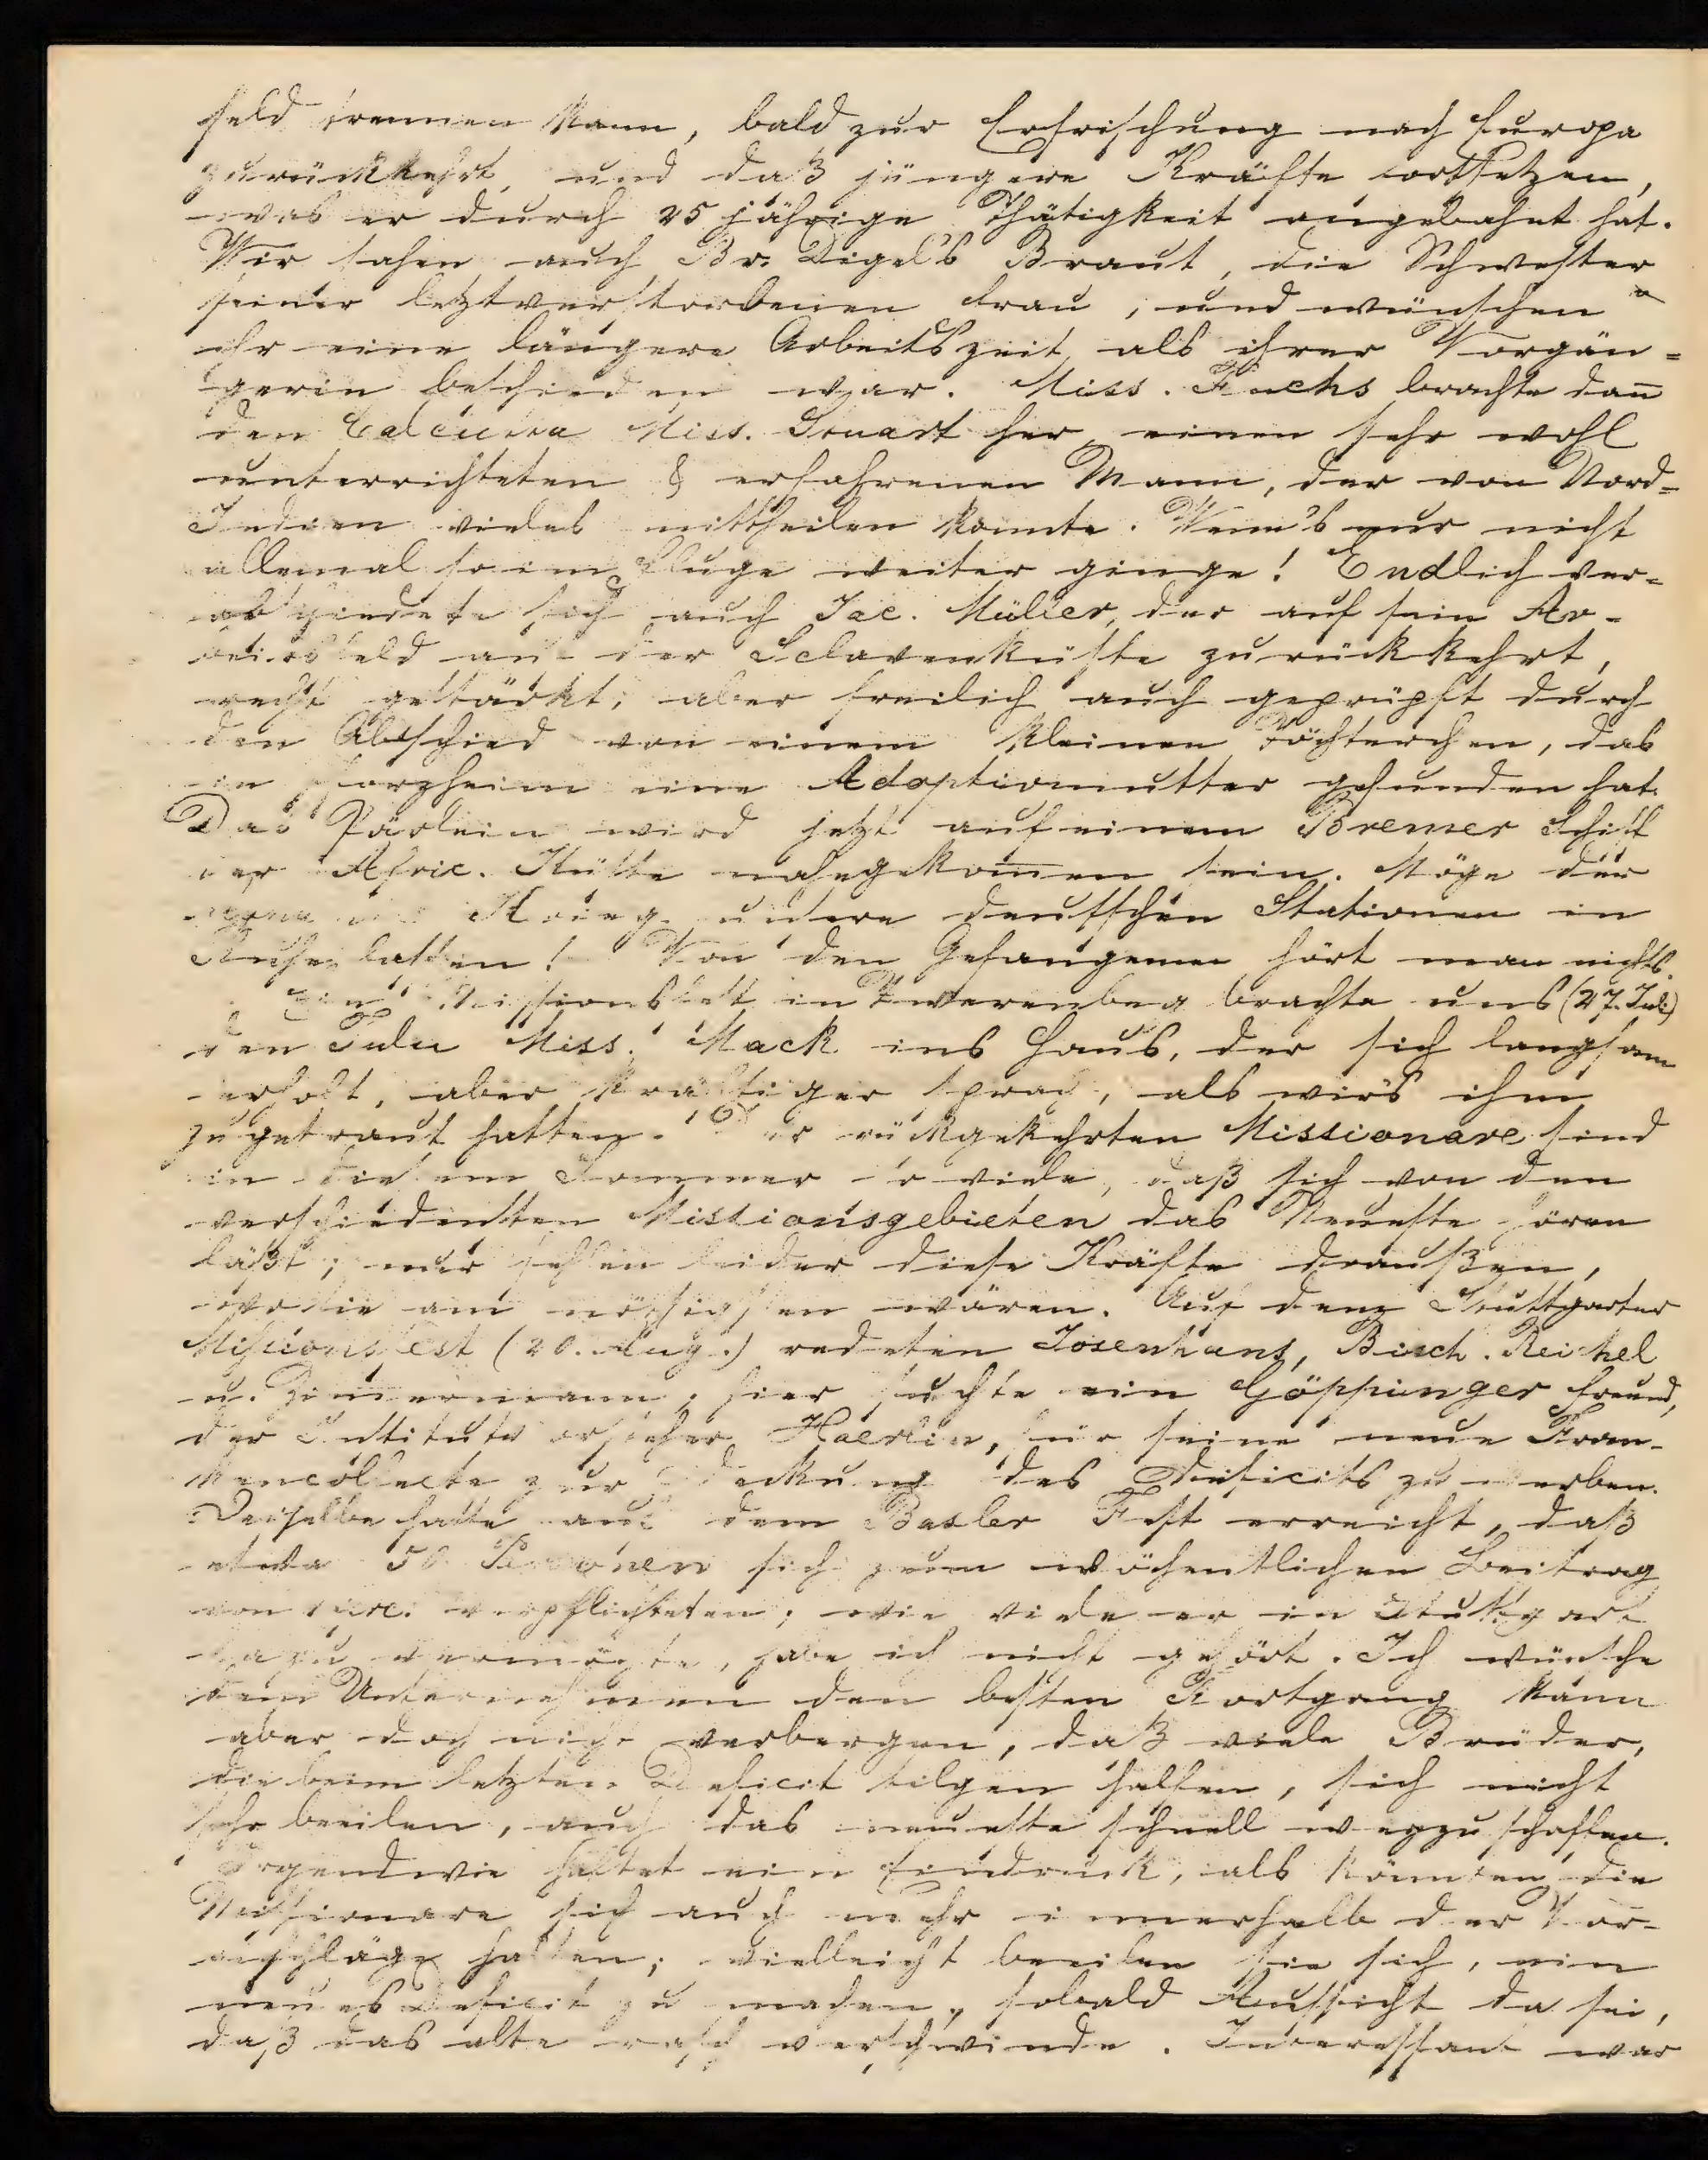 feld trennen kann, bald zur Erfrischung nach Europa
zurückkehrt, und daß jüngere Kräfte fortsetzen,
was er durch 25 jährige Thätigkeit angebahnt hat.
Wir sahen auch Br. Digel's Braut, die Schwester
seiner letztverstorbenen Frau, und wünschen
ihr eine längere Arbeitszeit als ihrer Vorgän=
gerin beschieden war. Miss. Fuchs brachte dañ
den Calcutta Miss. Stuart her, einen sehr wohl
unterrichteten & erfahrenen Mann, der von Nord=
Indien vieles mittheilen konnte. Wenn's nur nicht
allemal so im Fluge weiter ginge! Endlich ver=
abschiedete sich auch Jac. Müller, der auf sein Ar-
beitsfeld an der Sclavenküste zurückkehrt,
recht gestärkt, aber freilich auch geprüft durch
den Abschied von einem kleinen Töchterchen, das
in Pforzheim eine Adoptivmutter gefunden hat.
Das Pärlein wird jetzt auf einem Bremer Schiff
der Afric. Küste nahegekom̅en sein. Möge der
Krieg unsere deutschen Stationen in
Ruhe lassen! Von den Gefangenen hört man nichts.
Ein Missionsfest in Zwerenberg brachte uns (27. Juli)
den Tulu Miss. Mack ins Haus, der sich langsam
erholt, aber kräftiger sprach, als wir's ihm
zugetraut hatten. Der rückgekehrten Missionare sind
in diesem Sommer so viele, daß sich von den
verschiedensten Missionsgebieten das Neueste hören
läßt; nur fehlen leider diese Kräfte draußen,
wo sie am nöthigsten wären. Auf dem Stuttgarter
Missionsfest (20. Aug.) redeten Josenhans, Bisch. Reichel
u. Zimmermann; hier suchte ein Göppinger Freund,
der Institutsvorsteher Haerlin, für seine neue Fran-
kencollecte zur Deckung des Deficits zu werben.
Derselbe hatte auf dem Basler Fest erreicht, daß
etwa 50 Personen sich zum wöchentlichen Beitrag
von 1 frc. verpflichteten; wie viele er in Stuttgart
dazu vermochte, habe ich nicht gehört. Ich wünsche
dem Unternehmen den besten Fortgang kann
aber doch nicht verbergen, daß viele Brüder,
die beim letzten Deficit tilgen halfen, sich nicht
sehr beeilen, auch das neueste schnell wegzuschaffen.
Irgendwie haftet ein Eindruck, als könnten die
Missionare sich auch mehr innerhalb der Vor-
anschläge halten; vielleicht beeilen sie sich, ein
neues Deficit zu machen, sobald Aussicht da sei,
daß das alte rasch verschwinde. Interessant war